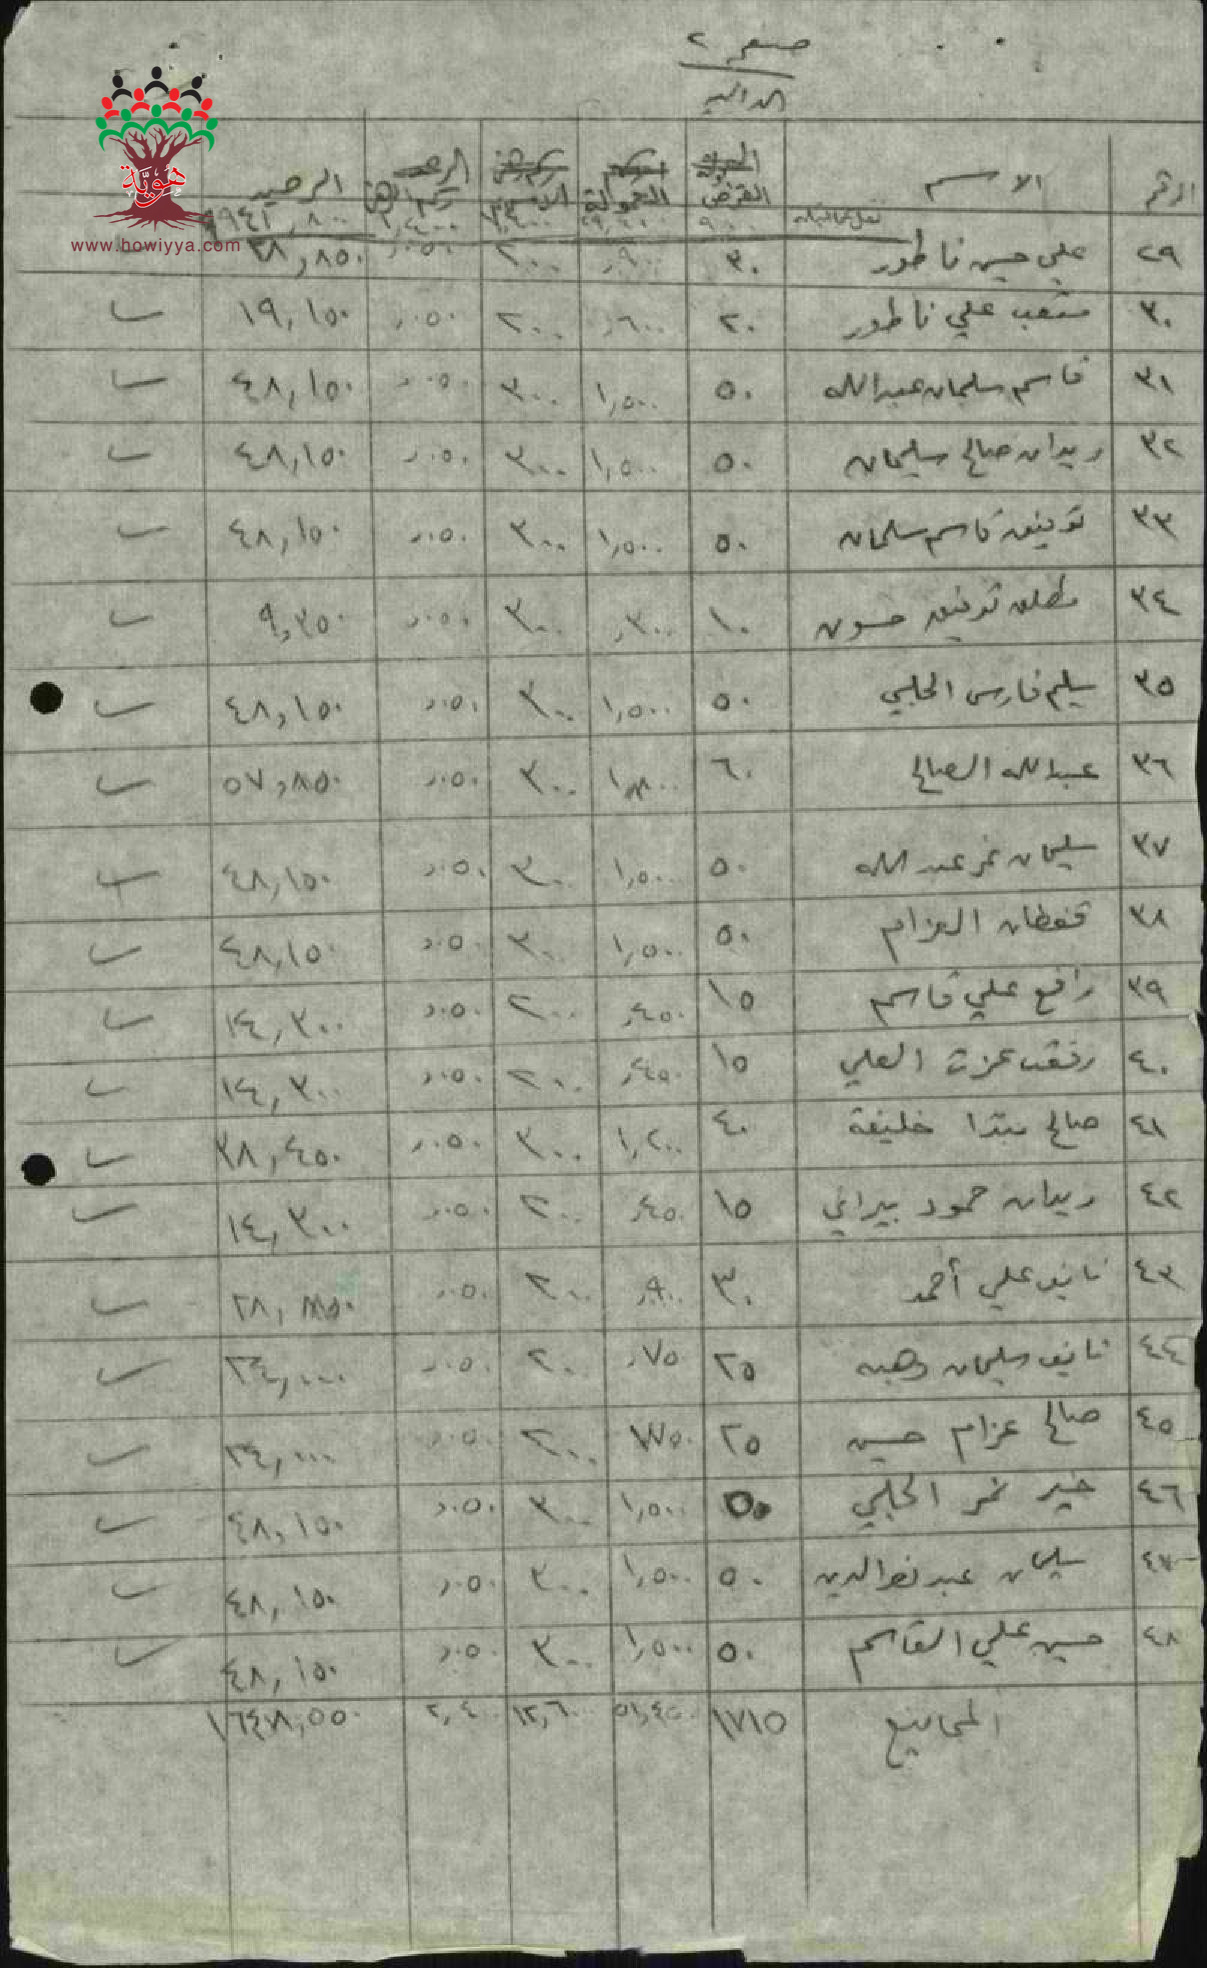 صفحة ٢
الدالية
الرقم الاسم القرض العمولة رسم الرهن الرصيد
نقل ما قبله ٩٤١,٨٠٠
هوية
www.howiyya.com
٢٩ علي حسين ناطور ٣٠ ,٩٠٠ ٢٠٠ ,٠٥٠ ٢٨,٨٥٠
٣٠ متعب علي ناطور ٢٠ ,٦٠٠ ٢٠٠ ,٠٥٠ ١٩,١٥٠
٣١ قاسم سليمان عبدالله ٥٠ ١,٥٠٠ ٣٠٠ ,٠٥٠ ٤٨,١٥٠
٣٢ زيدان صالح سليمان ٥٠ ١,٥٠٠ ٣٠٠ ,٠٥٠ ٤٨,١٥٠
٣٣ توفيق قاسم سلمان ٥٠ ١,٥٠٠ ٣٠٠ ,٠٥٠ ٤٨,١٥٠
٣٤ مطلق توفيق حسون ١٠ ,٣٠٠ ٣٠٠ ,٠٥٠ ٩,٣٥٠
٣٥ سليم فارس الحلبي ٥٠ ١,٥٠٠ ٣٠٠ ,٠٥٠ ٤٨,١٥٠
٣٦ عبدالله الصالح ٦٠ ١,٨٠٠ ٣٠٠ ,٠٥٠ ٥٧,٨٥٠
٣٧ سليمان نمر عبدالله ٥٠ ١,٥٠٠ ٣٠٠ ,٠٥٠ ٤٨,١٥٠
٣٨ قحطان العزام ٥٠ ١,٥٠٠ ٣٠٠ ,٠٥٠ ٤٨,١٥٠
٣٩ رافع علي قاسم ١٥ ,٤٥٠ ٢٠٠ ,٠٥٠ ١٤,٣٠٠
٤٠ رفعت عزت العلي ١٥ ,٤٥٠ ٢٠٠ ,٠٥٠ ١٤,٣٠٠
٤١ صالح خليفة ٤٠ ١,٢٠٠ ٣٠٠ ,٠٥٠ ٣٨,٤٥٠
٤٢ حمود بيراني ١٥ ,٤٥٠ ٢٠٠ ,٠٥٠ ١٤,٣٠٠
٤٣ نايف علي أحمد ٣٠ ,٩٠٠ ٢٠٠ ,٠٥٠ ٢٨,٨٥٠
٤٤ نايف سليمان وهبه ٢٥ ,٧٥ ٢٠٠ ,٠٥٠ ٢٤,٠٠٠
٤٥ صالح عزام حسين ٢٥ ,٧٥٠ ٢٠٠ ,٠٥٠ ٢٤,٠٠٠
٤٦ خير نمر الحلبي ٥٠ ١,٥٠٠ ٣٠٠ ,٠٥٠ ٤٨,١٥٠
٤٧ سليمان عبد نصرالدين ٥٠ ١,٥٠٠ ٣٠٠ ,٠٥٠ ٤٨,١٥٠
٤٨ حسين علي القاسم ٥٠ ١,٥٠٠ ٣٠٠ ,٠٥٠ ٤٨,١٥٠
المجاميع ١٧١٥ ٥١,٤٥٠ ١٢,٦٠٠ ٢,٤٠٠ ١٦٤٨,٥٥٠